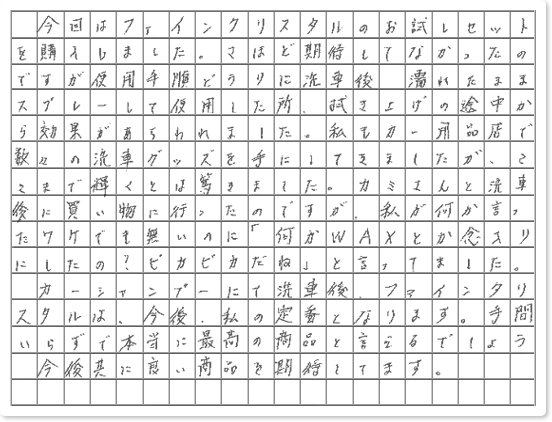 今回はファインクリスタルのお試しセット
を購入しました。さほど期待してなかったの
ですが使用手順どうりに洗車後、濡れたまま
スプレーして使用した所、拭き上げの途中か
ら効果があらわれました。私もカー用品店で
数々の洗車グッズを手にしてきましたが、こ
こまで輝くとは驚きました。カミさんと洗車
後に買い物に行ったのですが、私が何か言っ
たワケでも無いのに「何かWAXとか念入り
にしたの?ピカピカだね」と言ってました。
カーシャンプーにて洗車後、ファインクリ
スタルは、今後、私の定番となります。手間
いらずで本当に最高の商品と言えるでしょう
今後共に良い商品を期待してます。